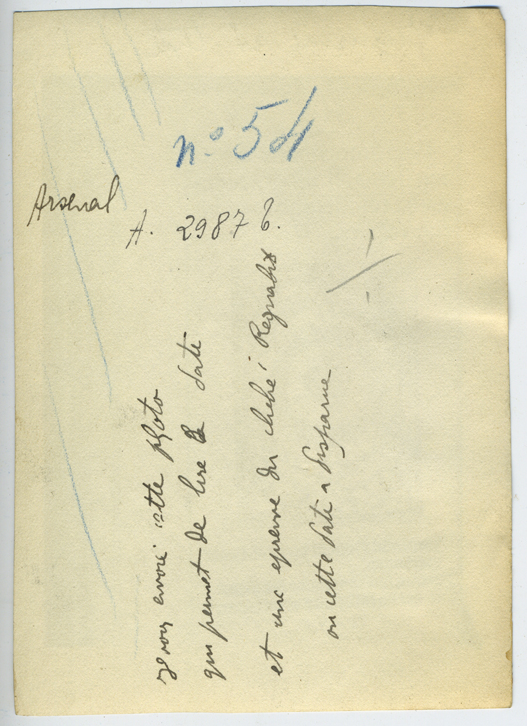 n° 54
Arsenal
A. 29876.
Je vous envoie cette photo
qui permet de lire la date
et une epreuve du cliché
ou cette date a disparue